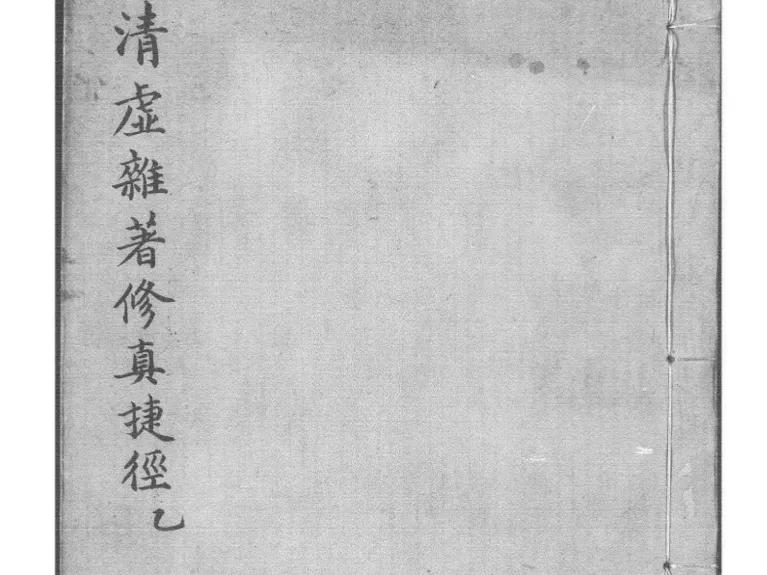 清虛雜著修真捷徑乙